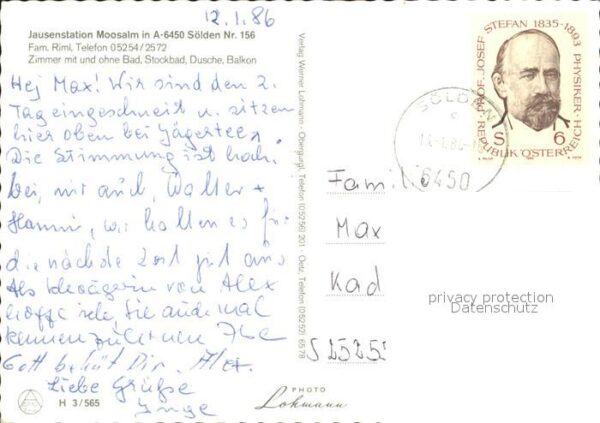 12.1.86
Jausenstation Moosalm in A-6450 Sölden Nr. 156
Fam. Riml, Telefon 05254/2572
Zimmer mit und ohne Bad, Stockbad, Dusche, Balkon
Hej Max! Wir sind den 2.
Tag eingeschneit u. sitzen
hier oben bei Jägertee,
Die Stimmung ist hoch
bei, mir auch, Walter +
Hannis, wir halten es für
die nächste Zeit gut aus
Als von Alex
hoffe ich Sie auch mal
kennen zu lernen
Gott behüt Dir, Alex.
Liebe Grüße
Inge
H 3/565
Verlag Werner Lohmann · Obergurgl, Telefon (05256) 201 · Oetz, Telefon (05252) 6578
PHOTO
Lohmann
SÖLDEN
6450
PROF. JOSEF STEFAN 1835-1893 PHYSIKER
REPUBLIK ÖSTERREICH
S 6
Famil
Max
Kad
S 2525
privacy protection
Datenschutz